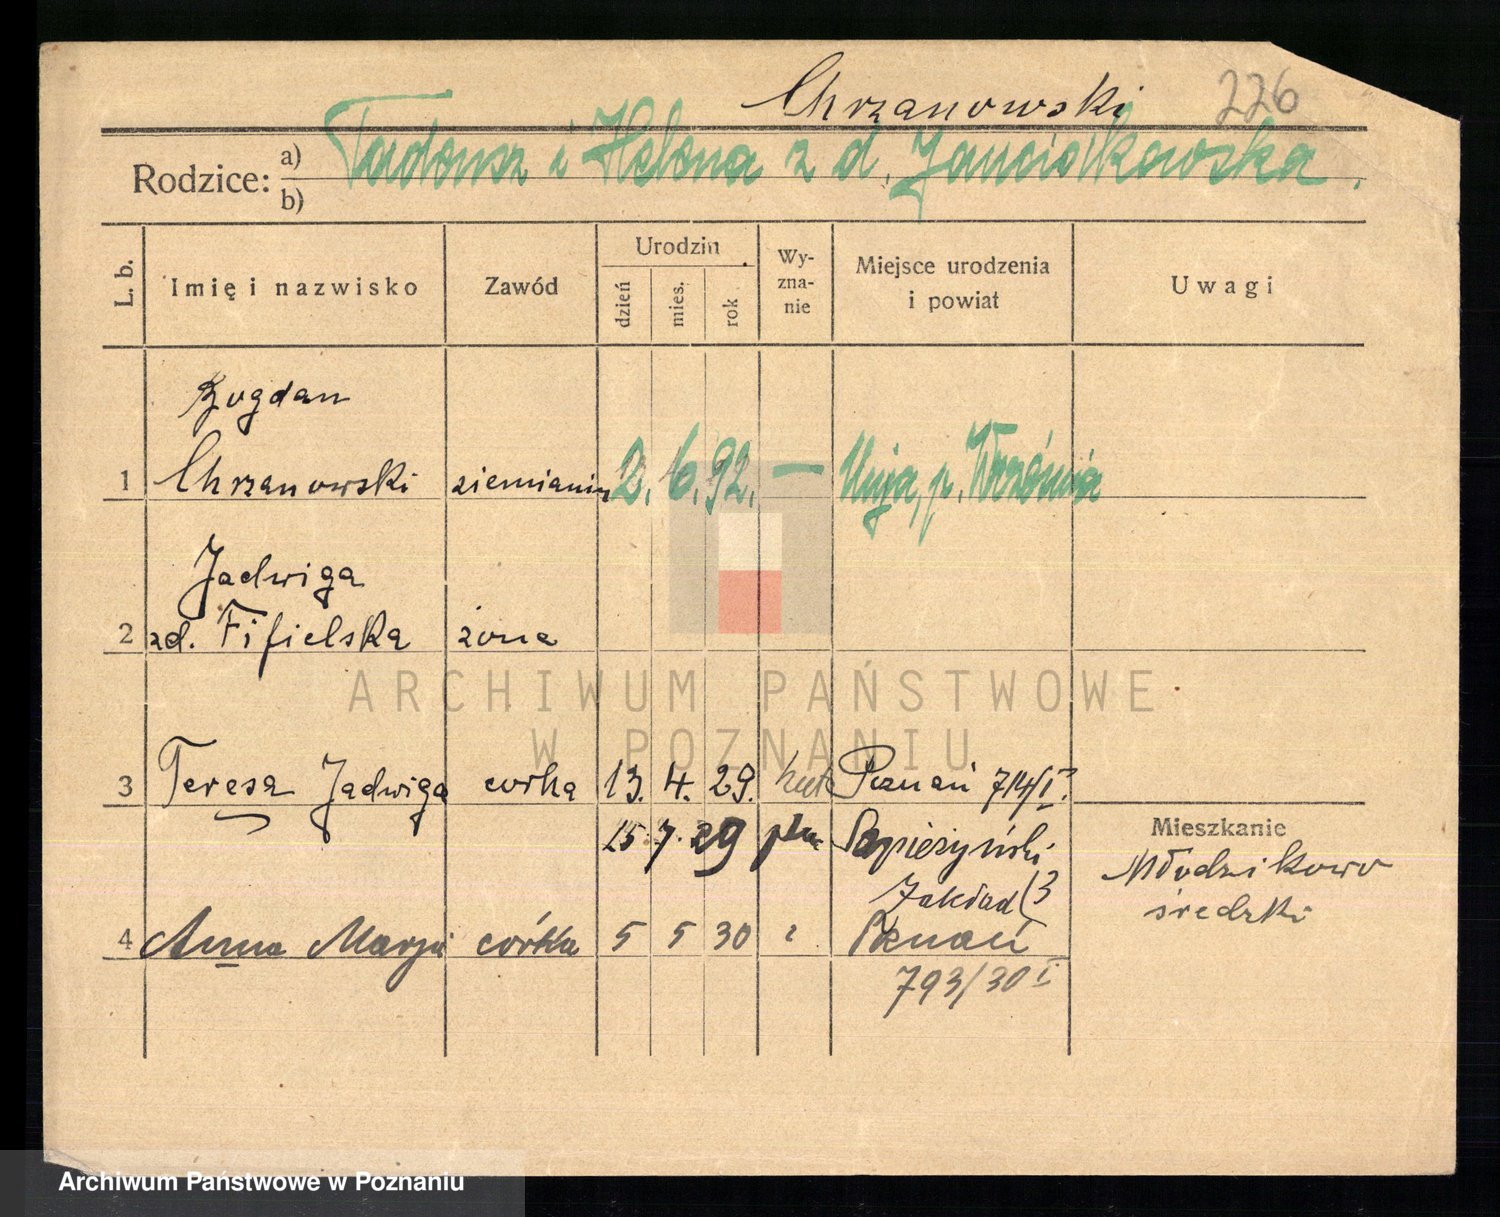 Chrzanowski 226
Rodzice: a) Tadeusz i Helena z d. Janciolkowska.
b)
L. b.
Imię i nazwisko
Zawód
Urodzin
dzień
mies.
rok
Wy-
zna-
nie
Miejsce urodzenia
i powiat
Uwagi
Bogdan
1 Chrzanowski ziemianin 2. 6. 92. — p. Września
Jadwiga
2 zd. Fifielska żona
3 Teresa Jadwiga corka 13. 4. 29. Poznań 714/I
15. 7. 29
Mieszkanie
Młodzikowo
średzki
Zakład
4 Anna Marja córka 5 5 30 Poznań
793/30 I
ARCHIWUM PAŃSTWOWE
W POZNANIU
Archiwum Państwowe w Poznaniu